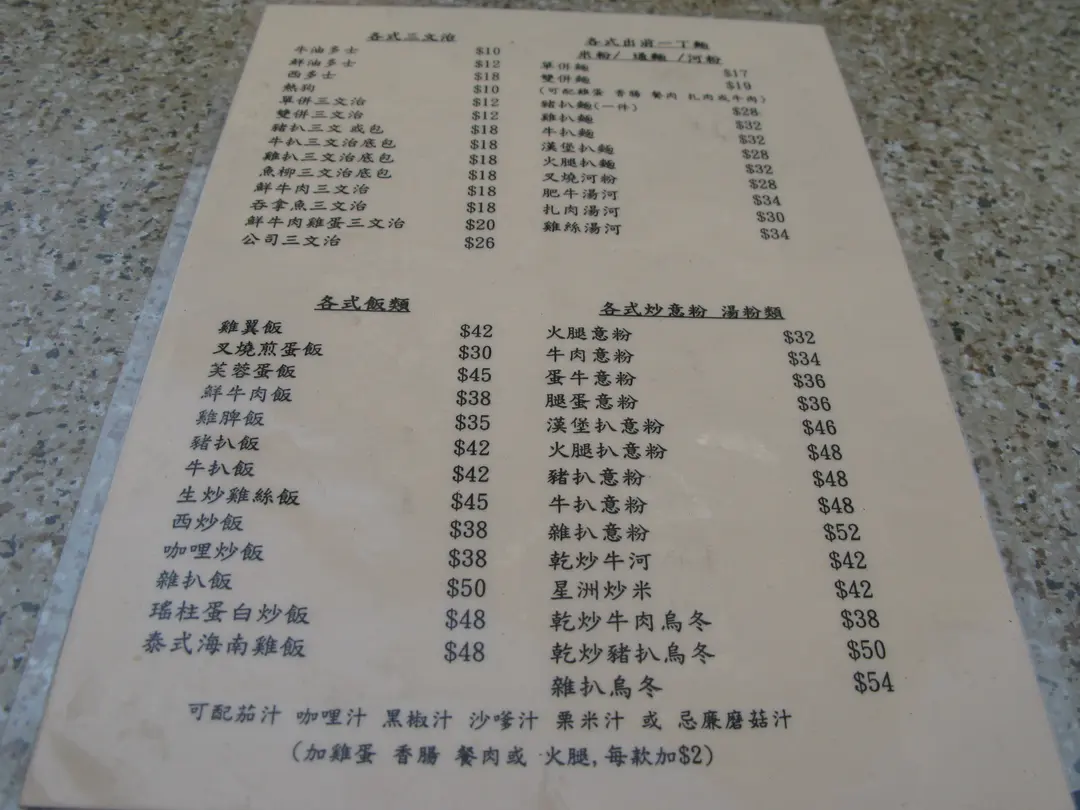 各式三文治
牛油多士 $10
鮮油多士 $12
西多士 $18
熱狗 $10
單併三文治 $12
雙併三文治 $12
豬扒三文 或包 $18
牛扒三文治底包 $18
雞扒三文治底包 $18
魚柳三文治底包 $18
鮮牛肉三文治 $18
吞拿魚三文治 $18
鮮牛肉雞蛋三文治 $20
公司三文治 $26
各式出前一丁麵
米粉/ 通麵 /河粉
單併麵 $17
雙併麵 $19
(可配雞蛋 香腸 餐肉 扎肉或牛肉)
豬扒麵(一件) $28
雞扒麵 $32
牛扒麵 $32
漢堡扒麵 $28
火腿扒麵 $32
叉燒河粉 $28
肥牛湯河 $34
扎肉湯河 $30
雞絲湯河 $34
各式飯類
雞翼飯 $42
叉燒煎蛋飯 $30
芙蓉蛋飯 $45
鮮牛肉飯 $38
雞脾飯 $35
豬扒飯 $42
牛扒飯 $42
生炒雞絲飯 $45
西炒飯 $38
咖哩炒飯 $38
雜扒飯 $50
瑤柱蛋白炒飯 $48
泰式海南雞飯 $48
各式炒意粉 湯粉類
火腿意粉 $32
牛肉意粉 $34
蛋牛意粉 $36
腿蛋意粉 $36
漢堡扒意粉 $46
火腿扒意粉 $48
豬扒意粉 $48
牛扒意粉 $48
雜扒意粉 $52
乾炒牛河 $42
星洲炒米 $42
乾炒牛肉烏冬 $38
乾炒豬扒烏冬 $50
雜扒烏冬 $54
可配茄汁 咖哩汁 黑椒汁 沙嗲汁 粟米汁 或 忌廉磨菇汁
(加雞蛋 香腸 餐肉或 火腿,每款加$2)